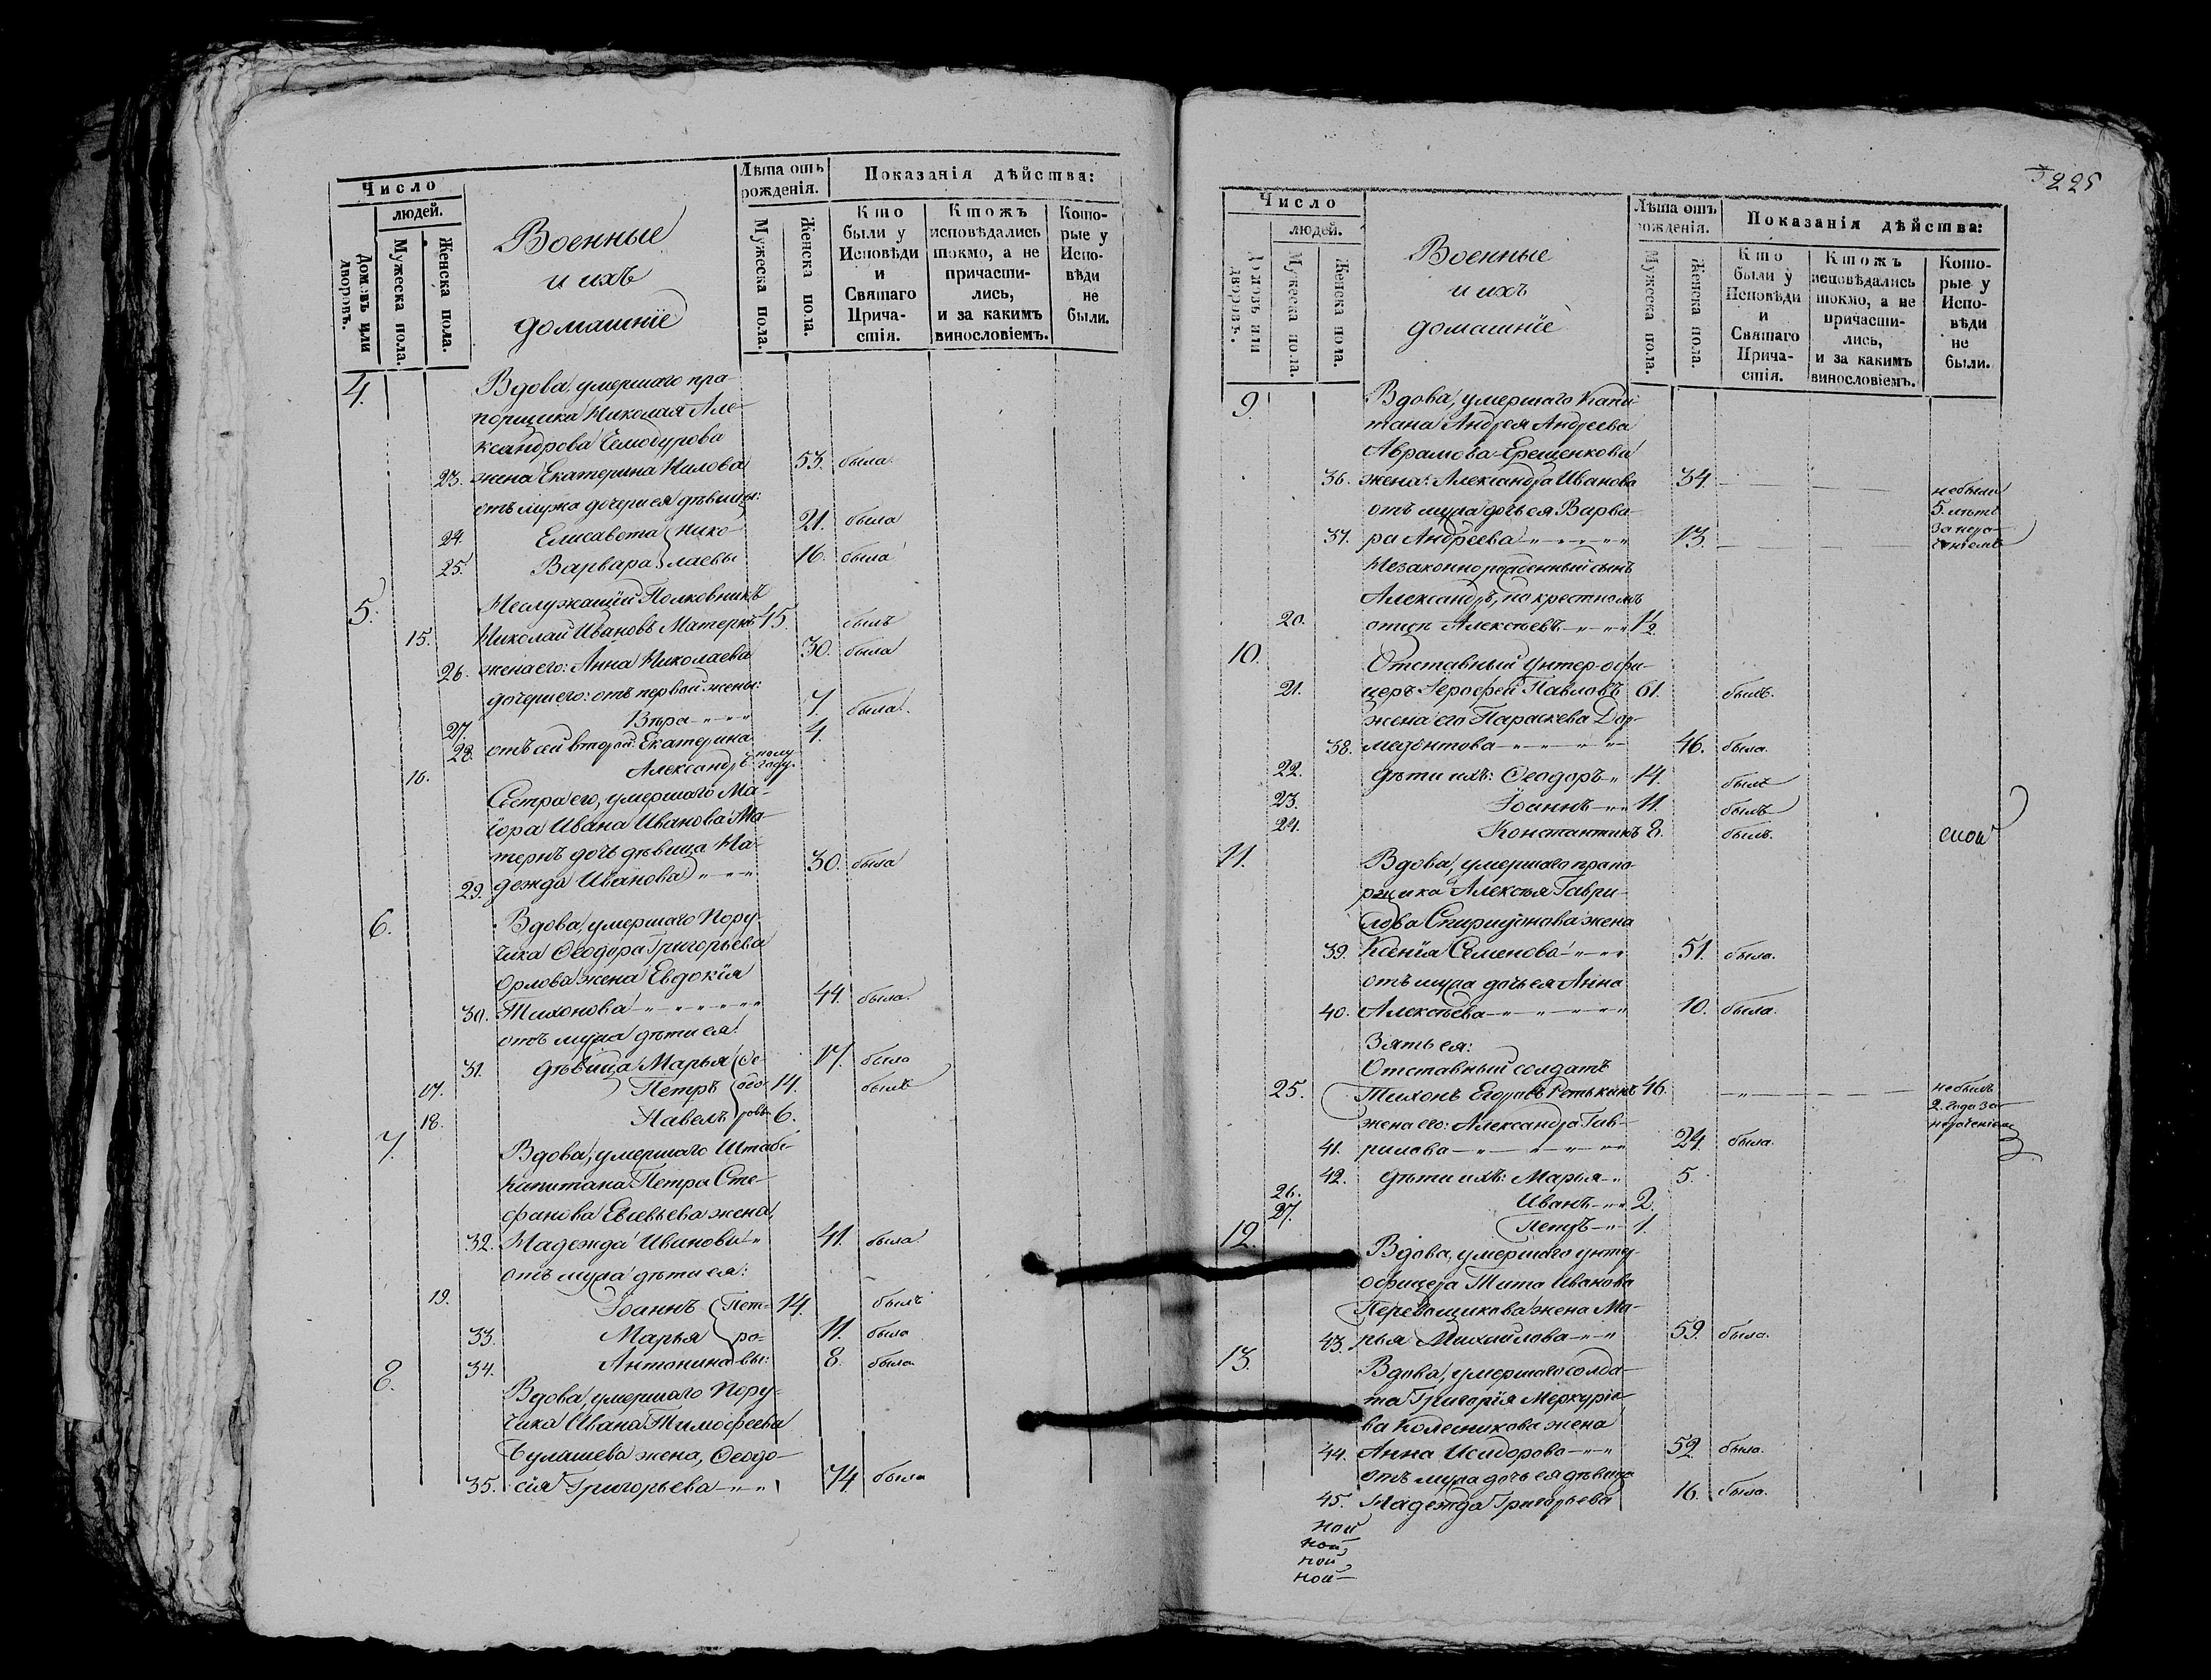 Число
людей.
Домовъ или дворовъ.
Мужеска пола.
Женска пола.
Военные
и ихъ
домашніе
Лѣта отъ рожденія.
Мужеска пола.
Женска пола.
Показанія дѣйства:
Кто были у Исповѣди и Святаго Причастія.
Ктожъ исповѣдались токмо, а не причастились, и за какимъ винословіемъ.
Которые у Исповѣди не были.
4. Вдова, умершаго пра-
порщика Николая Але-
ксандрова
23. жена Екатерина Нилова 53. была
отъ мужа дочери ея дѣвицы:
24. Елисавета Нико- 21. была
25. Варвара лаевы 16. была
5. Неслужащій Полковникъ
15. Николай Ивановъ Матернъ 45. былъ
26. жена его: Анна Николаева 30. была
дочери его: отъ первой жены:
27. Вѣра 7. была
28. отъ сей второй: Екатерина 4.
16. Александръ полу году.
Сестра его, умершаго Ма-
іора Ивана Иванова Ма-
тернъ дочь дѣвица На-
29. дежда Иванова 30. была
6. Вдова, умершаго Пору-
чика Ѳеодора Григорьева
Орлова жена Евдокія
30. Тихонова 44. была.
отъ мужа дѣти ея:
31. дѣвица Марья Ѳе- 17. была
17. Петръ одо- 14. былъ
18. Павелъ ровы 6.
7. Вдова, умершаго Штабс-
капитана Петра Сте-
фанова жена,
32. Надежда Иванова 41. была
отъ мужа дѣти ея:
19. Іоаннъ Пет- 14. былъ
33. Марья ро- 11. была
34. Антонина вы: 8. была
8. Вдова, умершаго Пору-
чика Ивана Тимофеева
Булашева жена, Ѳеодо-
35. сія Григорьева 74 была
225
Число
людей.
Домовъ или дворовъ.
Мужеска пола.
Женска пола.
Военные
и ихъ
домашніе
Лѣта отъ рожденія.
Мужеска пола.
Женска пола.
Показанія дѣйства:
Кто были у Исповѣди и Святаго Причастія.
Ктожъ исповѣдались токмо, а не причастились, и за какимъ винословіемъ.
Которые у Исповѣди не были.
9. Вдова, умершаго Капи-
тана Андрея Андреева
Аврамова-Ерещенкова
36. жена: Александра Иванова 34. небыли
отъ мужа дочь ея Варва- 5. лѣтъ
37. ра Андреева 13. за нера-
Незаконнорожденный сынъ
Александръ, по крестномъ
20. отцѣ Алексѣевъ 1½
10. Отставный унтер-офи-
21. церъ Іерофей Павловъ 61. былъ.
жена его Параскева Дор-
38. медонтова 46. была.
22. дѣти ихъ: Ѳеодоръ 14. былъ
23. Іоаннъ 11. былъ
24. Константинъ 8. былъ.
11. Вдова, умершаго прапо-
рщика Алексѣя Гаври-
лова Спиридонова жена
39. Ксенія Семенова 51. была.
отъ мужа дочь ея Анна
40. Алексѣева 10. была.
Зять ея:
Отставный солдатъ
25. Тихонъ Егоровъ Ретькинъ 46. небылъ
2. года за
жена его: Александра Гав- нераченіемъ
41. рилова 24. была.
42. дѣти ихъ: Марья 5.
26. Иванъ 2.
27. Петръ 1.
12. Вдова, умершаго унтер-
офицера Тита Иванова
Перевощикова жена Ма-
43. рья Михайлова 59. была.
13. Вдова, умершаго солда-
та Григорія Меркурье-
ва Колесникова жена
44. Анна Исидорова 52. была.
отъ мужа дочь ея дѣвица
45. Надежда Григорьева 16. была.
ной
ной,
ной,
ной